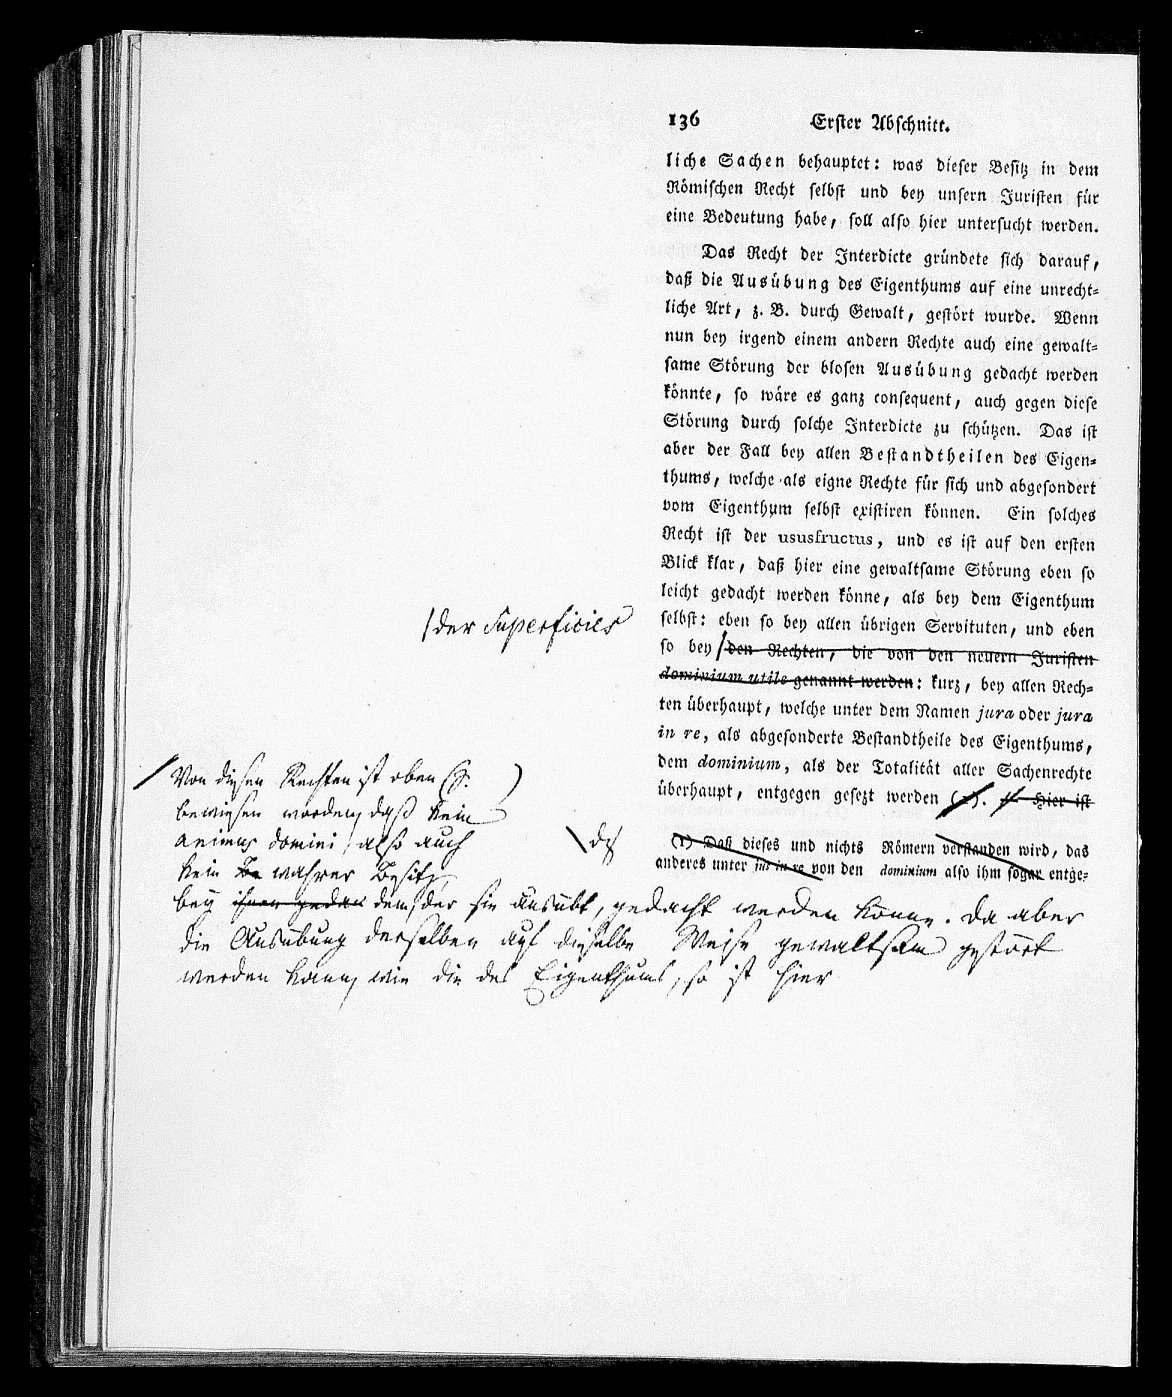 136 Erster Abschnitt.
liche Sachen behauptet: was dieser Besitz in dem
Römischen Recht selbst und bey unsern Juristen für
eine Bedeutung habe, soll also hier untersucht werden.
Das Recht der Interdicte gründete sich darauf,
daß die Ausübung des Eigenthums auf eine unrecht-
liche Art, z. B. durch Gewalt, gestört wurde. Wenn
nun bey irgend einem andern Rechte auch eine gewalt-
same Störung der blosen Ausübung gedacht werden
könnte, so wäre es ganz consequent, auch gegen diese
Störung durch solche Interdicte zu schützen. Das ist
aber der Fall bey allen Bestandtheilen des Eigen-
thums, welche als eigne Rechte für sich und abgesondert
vom Eigenthum selbst existiren können. Ein solches
Recht ist der ususfructus, und es ist auf den ersten
Blick klar, daß hier eine gewaltsame Störung eben so
leicht gedacht werden könne, als bey dem Eigenthum
selbst: eben so bey allen übrigen Servituten, und eben
/der Superficies
so bey / den Rechten, die von den neuern Juristen
dominium utile genannt werden: kurz, bey allen Rech-
ten überhaupt, welche unter dem Namen jura oder jura
in re, als abgesonderte Bestandtheile des Eigenthums,
dem dominium, als der Totalität aller Sachenrechte
überhaupt, entgegen gesezt werden (1). Hier ist
(1) Daß dieses und nichts anderes unter jus in re von den
Römern verstanden wird, das dominium also ihm sogar entge-
/ Von diesen Rechten ist oben (S. )
bewiesen worden, daß kein
animus domini, also auch
kein Be wahrer Besitz
bey ihnen gedac dem, der sie ausübt, gedacht werden könne. Da aber
die Ausübung derselben auf dieselbe Weise gewaltsam gestört
werden kann, wie die des Eigenthums, so ist hier